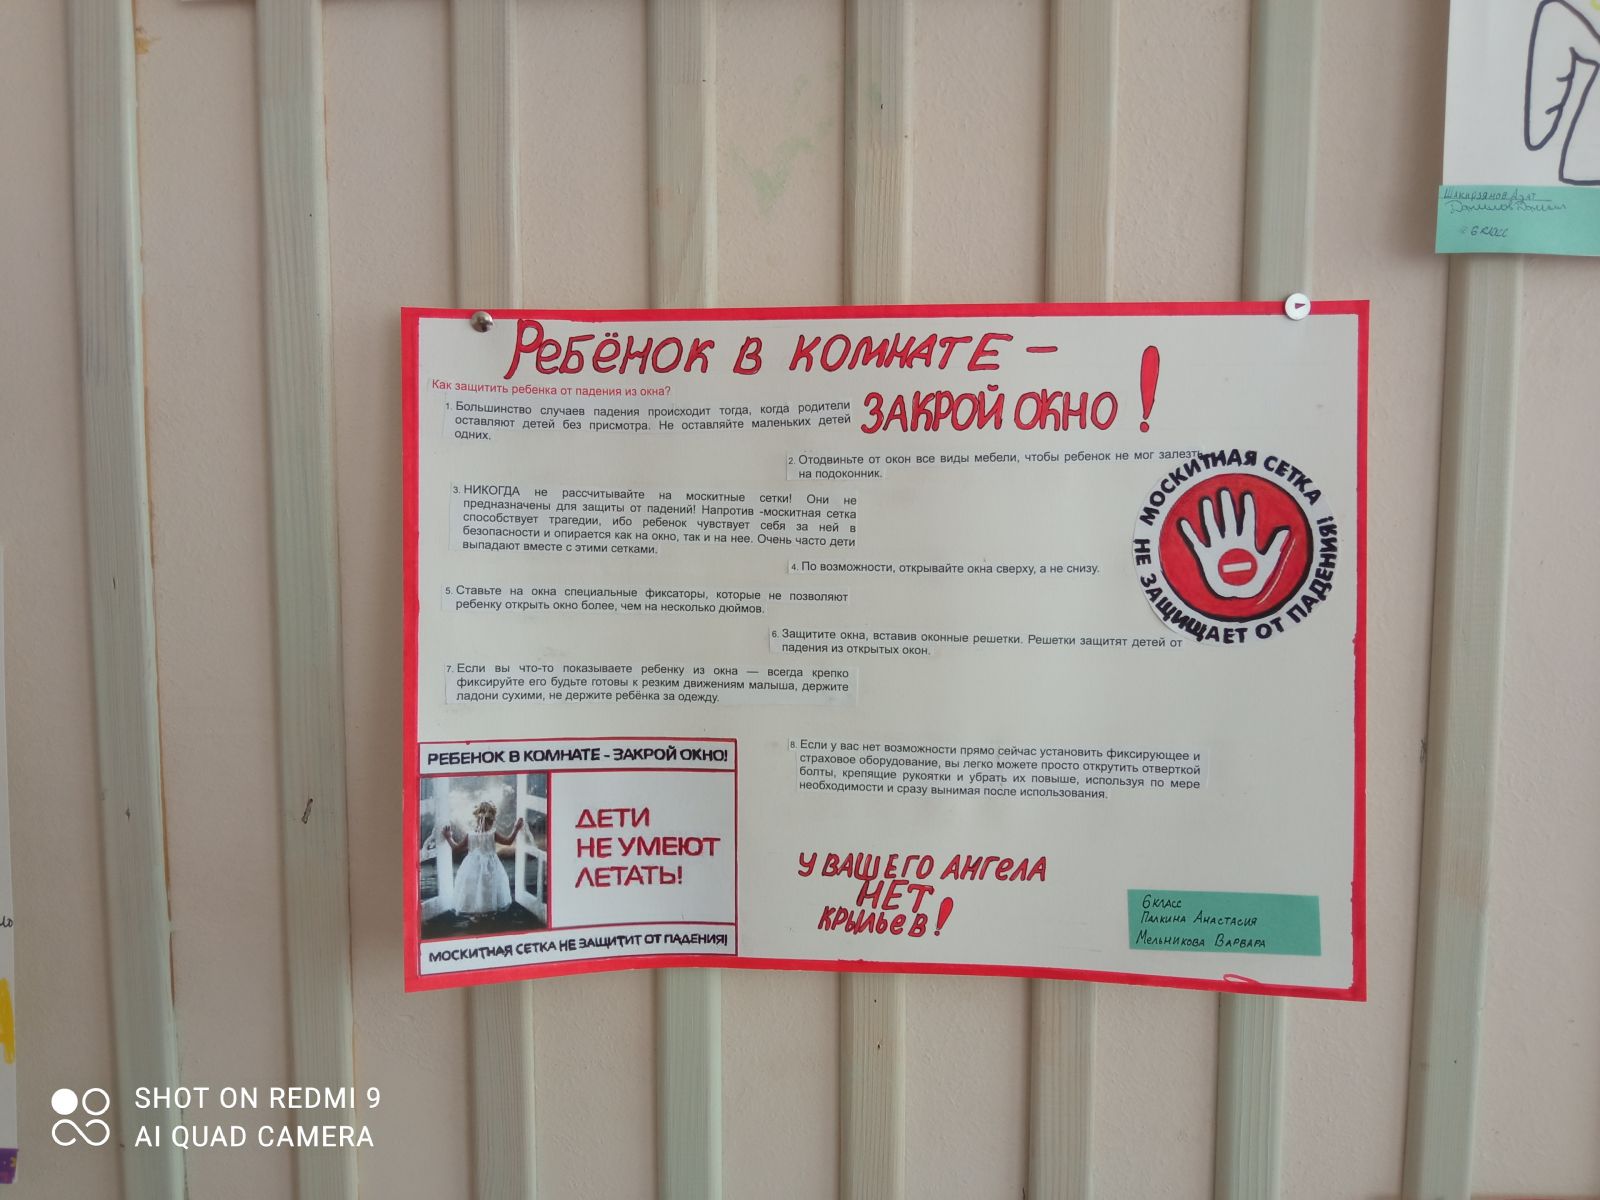 Ребёнок в комнате –
закрой окно!
Как защитить ребенка от падения из окна?
1. Большинство случаев падения происходит тогда, когда родители
оставляют детей без присмотра. Не оставляйте маленьких детей
одних.
2. Отодвиньте от окон все виды мебели, чтобы ребенок не мог залезть
на подоконник.
МОСКИТНАЯ СЕТКА
НЕ ЗАЩИЩАЕТ ОТ ПАДЕНИЯ!
3. НИКОГДА не рассчитывайте на москитные сетки! Они не
предназначены для защиты от падений! Напротив -москитная сетка
способствует трагедии, ибо ребенок чувствует себя за ней в
безопасности и опирается как на окно, так и на нее. Очень часто дети
выпадают вместе с этими сетками.
4. По возможности, открывайте окна сверху, а не снизу.
5. Ставьте на окна специальные фиксаторы, которые не позволяют
ребенку открыть окно более, чем на несколько дюймов.
6. Защитите окна, вставив оконные решетки. Решетки защитят детей от
падения из открытых окон.
7. Если вы что-то показываете ребенку из окна — всегда крепко
фиксируйте его будьте готовы к резким движениям малыша, держите
ладони сухими, не держите ребёнка за одежду.
8. Если у вас нет возможности прямо сейчас установить фиксирующее и
страховое оборудование, вы легко можете просто открутить отверткой
болты, крепящие рукоятки и убрать их повыше, используя по мере
необходимости и сразу вынимая после использования.
РЕБЕНОК В КОМНАТЕ - ЗАКРОЙ ОКНО!
ДЕТИ
НЕ УМЕЮТ
ЛЕТАТЬ!
МОСКИТНАЯ СЕТКА НЕ ЗАЩИТИТ ОТ ПАДЕНИЯ!
У ВАШЕГО АНГЕЛА
НЕТ
КРЫЛЬЕВ!
6 класс
Палкина Анастасия
Мельникова Варвара
Шакирзянов Азат
Данилов
6 класс
SHOT ON REDMI 9
AI QUAD CAMERA